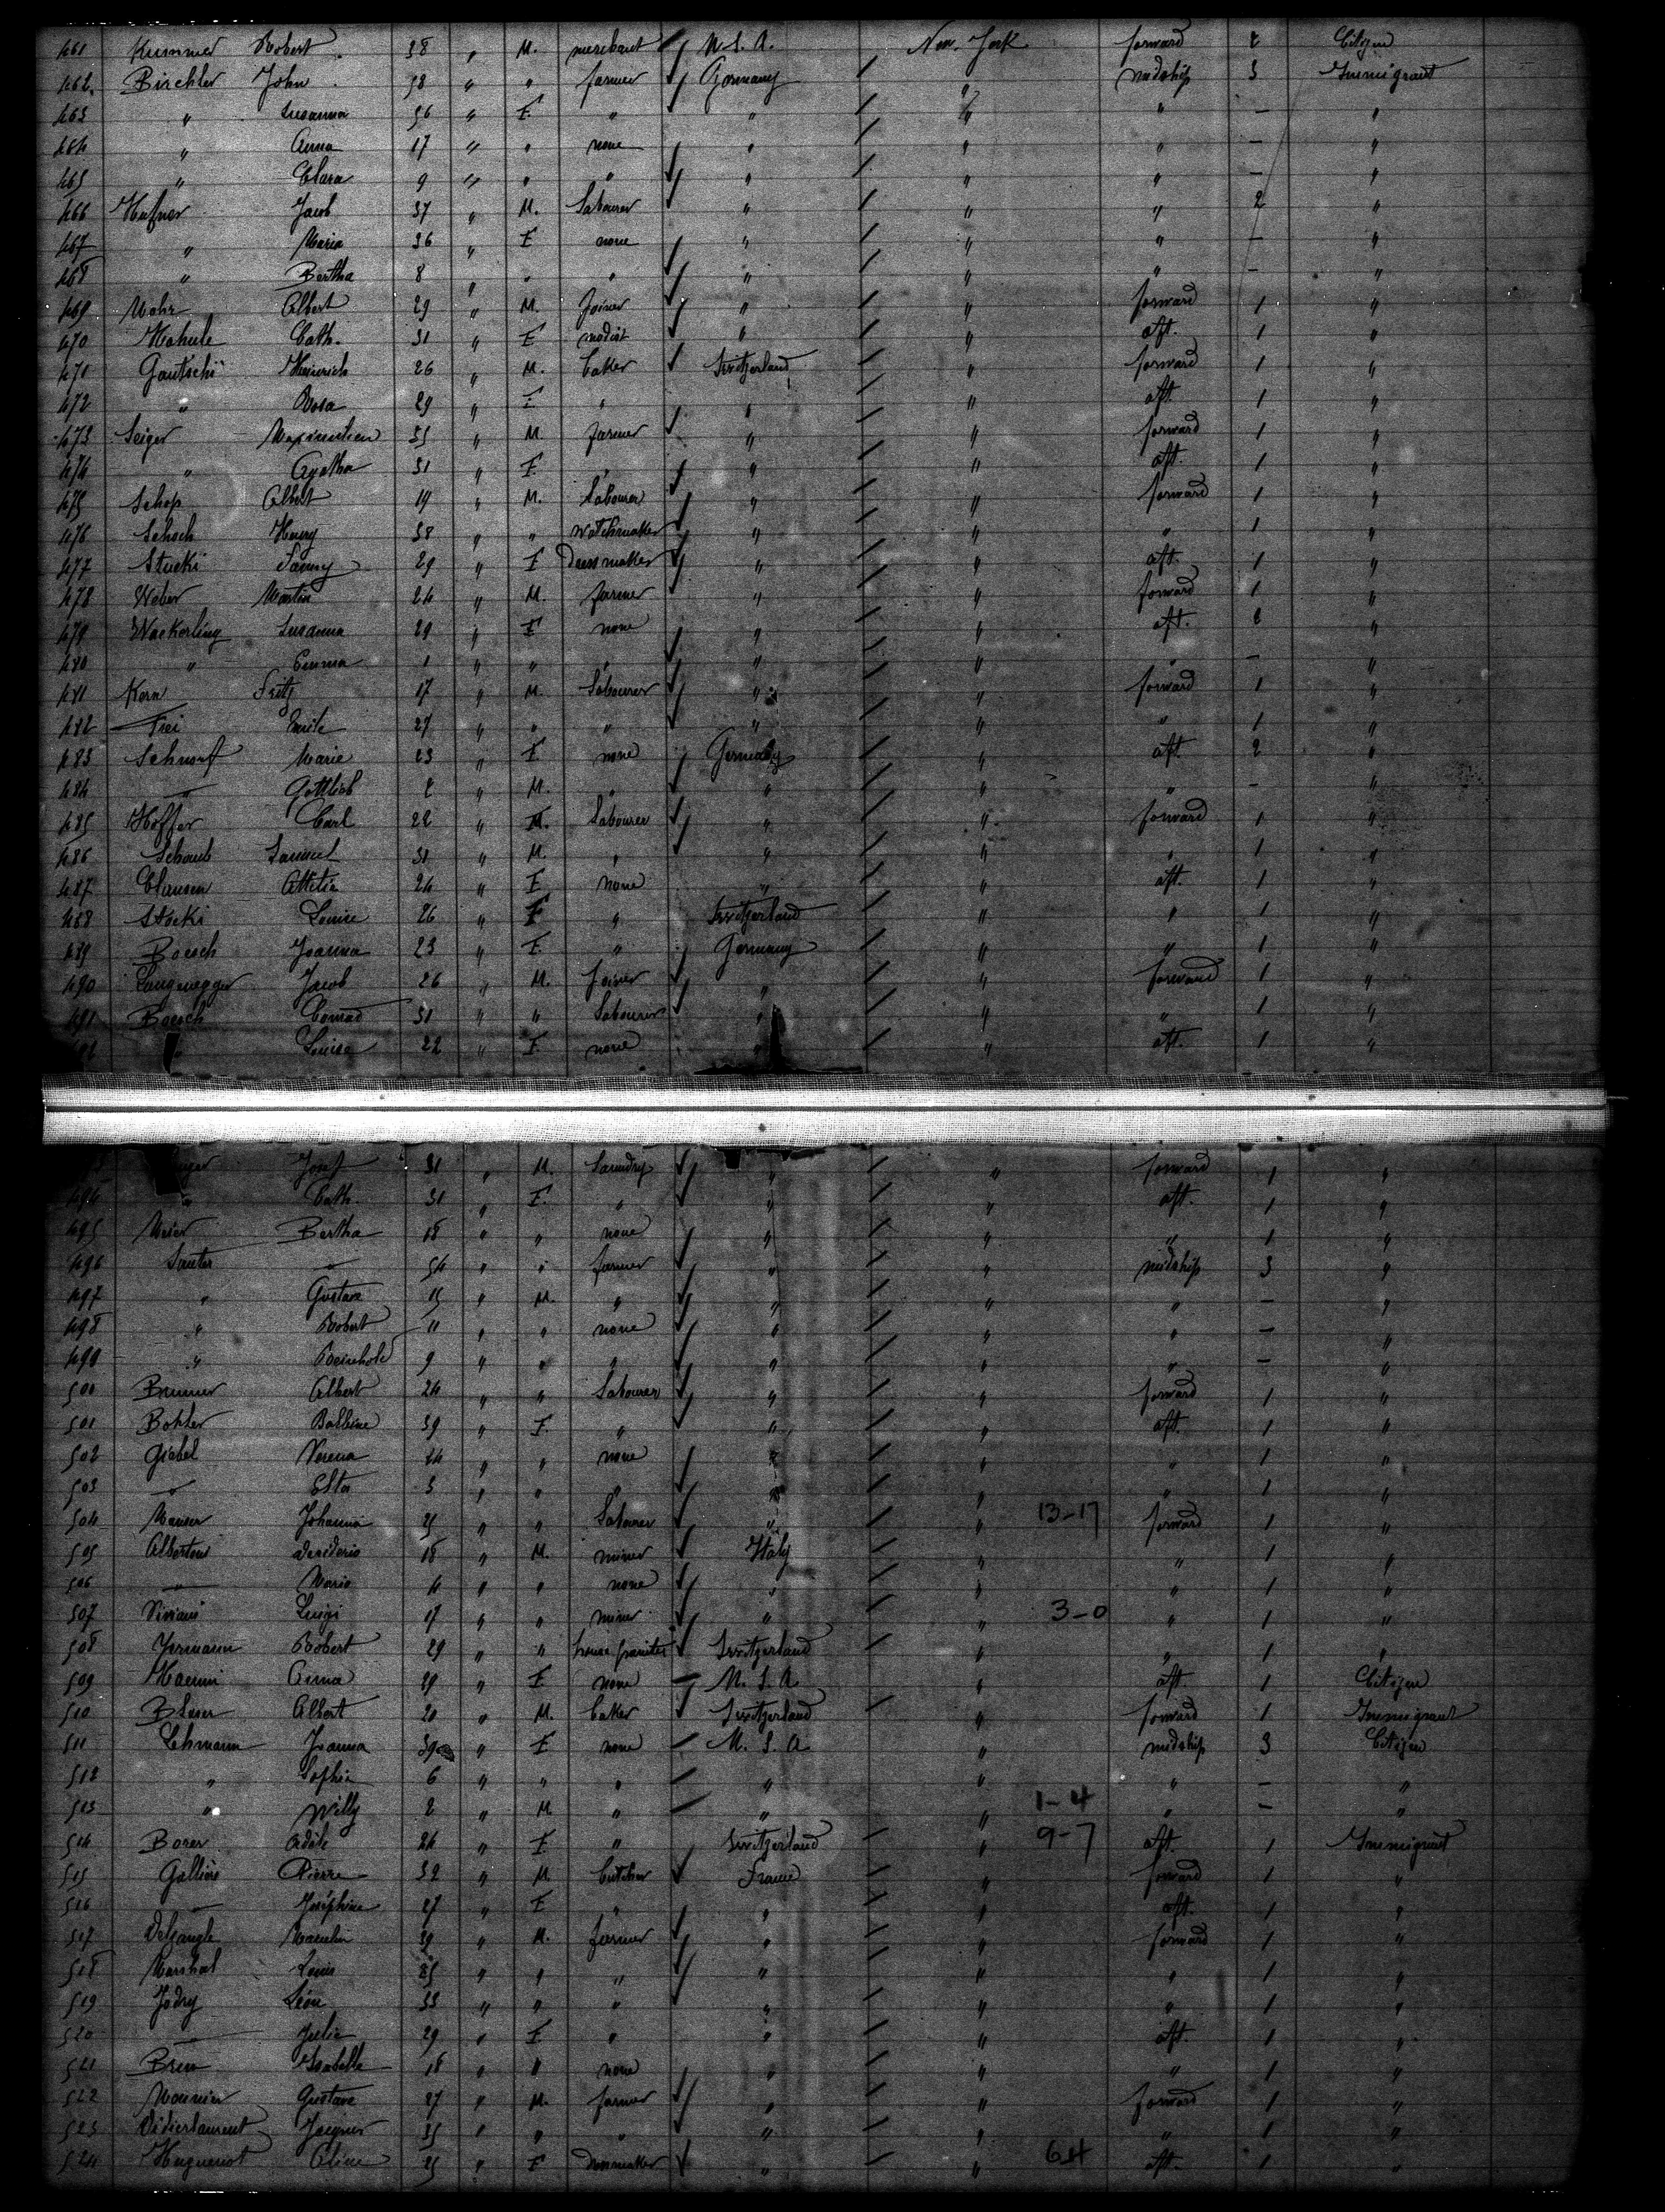 461 Kummer Robert 38 " M. merchant U.S.A. New-York forward 2 Citizen
462 Birchler John 58 " " farmer Germany " midship 3 Immigrant
463 " Susanna 56 " F. " " " " — "
464 " Anna 17 " " none " " " — "
465 " Clara 9 " " " " " " — "
466 Hufner Jacob 37 " M. Labourer " " " 2 "
467 " Maria 36 " F. none " " " — "
468 " Bertha 8 " " " " " " — "
469 Mohr Albert 29 " M. Joiner " " forward 1 "
470 Cath. 31 " F. modist " " aft. 1 "
471 Gautschi Heinrich 26 " M. baker Switzerland " forward 1 "
472 " Rosa 29 " F. " " " aft. 1 "
473 Seiger Maximilien 35 " M. farmer " " forward 1 "
474 " Agatha 31 " F. " " " aft. 1 "
475 Schop Albert 19 " M. Labourer " " forward 1 "
476 Schoch Henry 38 " " watchmaker " " " 1 "
477 Stucki Fanny 29 " F. Dressmaker " " aft. 1 "
478 Weber Martin 24 " M. farmer " " forward 1 "
479 Wackerling Susanna 29 " F. none " " aft. 2 "
480 " Emma 1 " " " " " " — "
481 Korn Fritz 17 " M. Labourer " " forward 1 "
482 Frei Emile 27 " " " " " " 1 "
483 Schnorf Marie 23 " F. none Germany " aft. 2 "
484 " Gottlieb 2 " M. " " " " — "
485 Hoffer Carl 22 " M. Labourer " " forward 1 "
486 Schaub Samuel 31 " M. " " " " 1 "
487 Clausen 24 " F. none " " aft. 1 "
488 Stocki Louise 26 " F. " Switzerland " " 1 "
489 Boesch Joanna 23 " F. " Germany " " 1 "
490 Langenegger Jacob 26 " M. Joiner " " forward 1 "
491 Boesch Conrad 31 " " Labourer " " " 1 "
" Louise 22 " F. none " " aft. 1 "
Josef 31 " M. Laundry " " forward 1 "
494 " Cath. 31 " F. " " " aft. 1 "
495 Meier Bertha 18 " " none " " " 1 "
496 Sauter " 54 " " farmer " " midship 3 "
497 " Gustave 15 " M. " " " " — "
498 " Robert 11 " " none " " " — "
499 " Reinhold 9 " " " " " " — "
500 Brunner Albert 24 " " Labourer " " forward 1 "
501 Bohler Balbine 39 " F. " " " aft. 1 "
502 Giebel Verena 24 " " none " " " 1 "
503 " Elsa 3 " " " " " " 1 "
504 Mauser Johanna 25 " " Labourer " " 13-17 forward 1 "
505 Desiderio 18 " M. miner Italy " " 1 "
506 " Mario 4 " " none " " " 1 "
507 Viviani Luigi 17 " " miner " " 3-0 " 1 "
508 Robert 29 " " Switzerland " " 1 "
509 Anna 29 " F. none U.S.A. " aft. 1 Citizen
510 Blaser Albert 20 " M. baker Switzerland " forward 1 Immigrant
511 Lehmann Joanna 39 " F. none U.S.A. " midship 3 Citizen
512 " Sophie 6 " " " " " " — "
513 " Willy 2 " M. " " " 1-4 " — "
514 Borer 24 " F. " Switzerland " 9-7 aft. 1 Immigrant
515 Pierre 32 " M. butcher France " forward 1 "
516 — Joséphine 27 " F. " " " aft. 1 "
517 39 " M. farmer " " forward 1 "
518 Marshal Louis 25 " " " " " " 1 "
519 Jodry Léon 33 " " " " " " 1 "
520 " Julie 29 " F. " " " aft. 1 "
521 Isabelle 18 " " none " " " 1 "
522 Gustave 27 " M. farmer " " forward 1 "
523 Didierlaurent Jacques 35 " " " " " " 1 "
524 Huguenot Céline 25 " F. Dressmaker " " 6-4 aft. 1 "